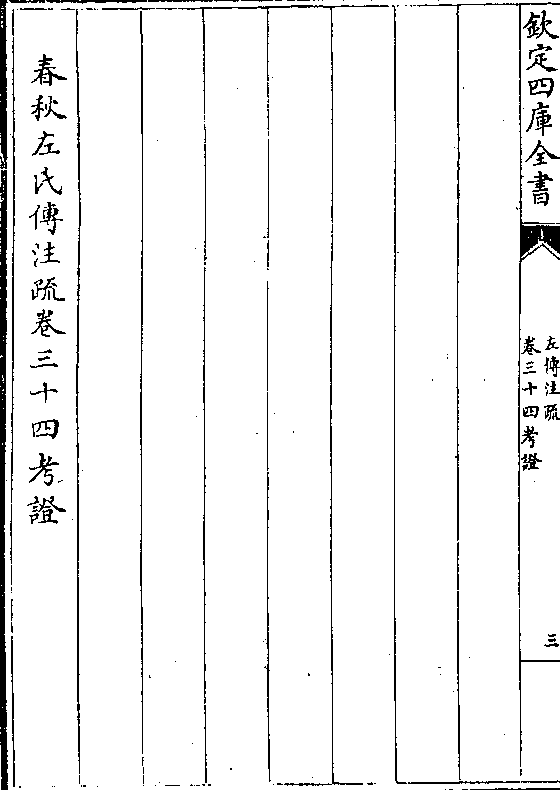 欽定四庫全書
左傳注疏
卷三十四考證
三
春秋左氏傳注疏卷三十四考證